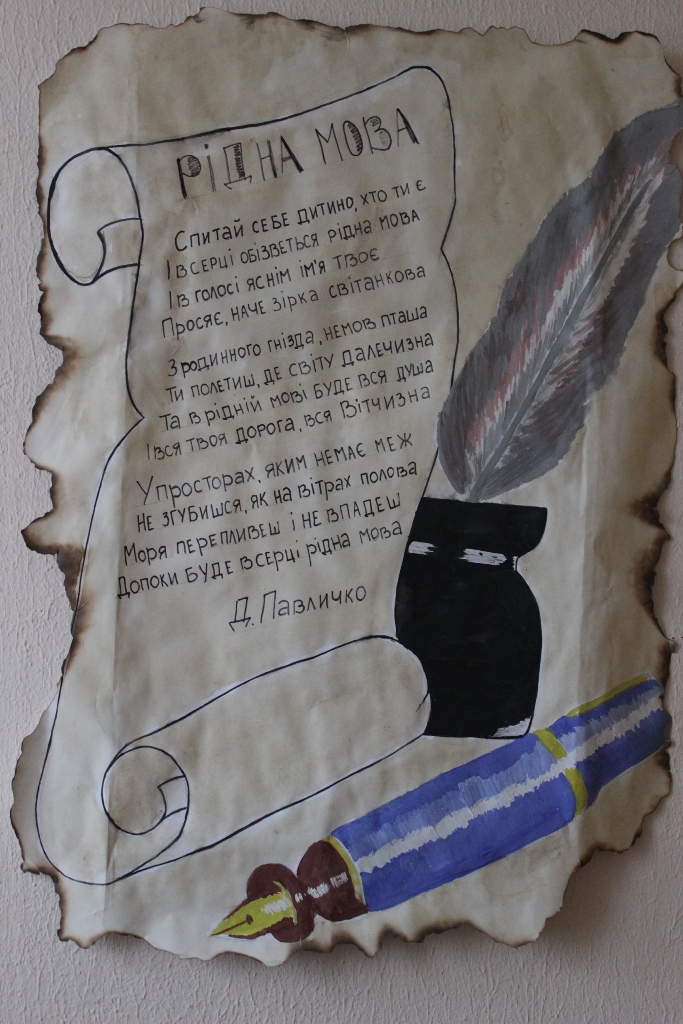 РІДНА МОВА
Спитай себе дитино, хто ти є
І в серці обізветься рідна мова
І в голосі яснім ім'я твоє
Просяє, наче зірка світанкова
З родинного гнізда, немов пташа
Ти полетиш, де світу далечизна
Та в рідній мові буде вся душа
І вся твоя дорога, вся Вітчизна
У просторах, яким немає меж
Не згубишся, як на вітрах полова
Моря перепливеш і не впадеш
Допоки буде в серці рідна мова
Д. Павличко